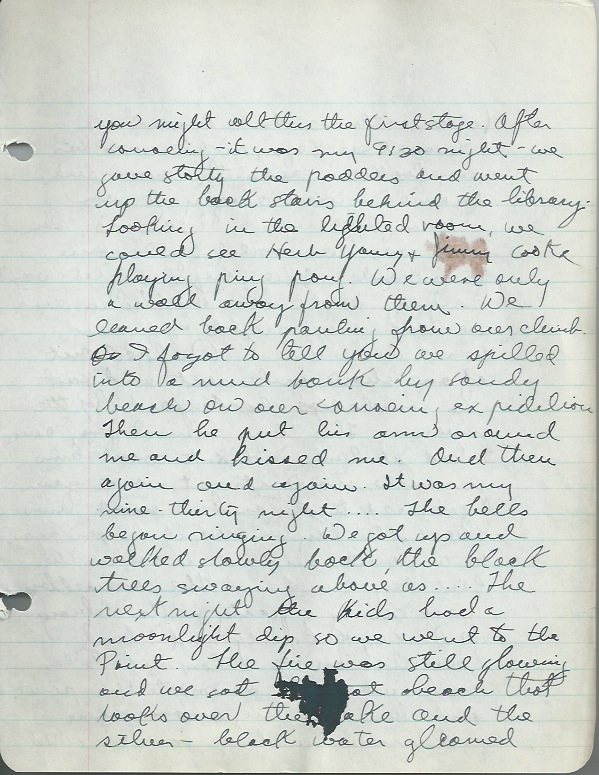 you might call this the first stage. After
canoeing - it was my 9:30 night - we
gave stolty the paddles and went
up the back stairs behind the library.
Looking in the lighted room, we
could see Herb Young + Jimmy Cooke
playing ping pong. We were only
a wall away from them. We
leaned back panting from our climb.
I forgot to tell you we spilled
into a mud bank by sandy
beach on our canoeing expidition
Then he put his arm around
me and kissed me. And then
again and again. It was my
nine-thirty night .... The bells
began ringing. We got up and
walked slowly back, the black
trees swaying above us .... The
next night the kids had a
moonlight dip so we went to the
Point. The fire was still glowing
and we sat at beach that
looks over the lake and the
silver - black water gleamed